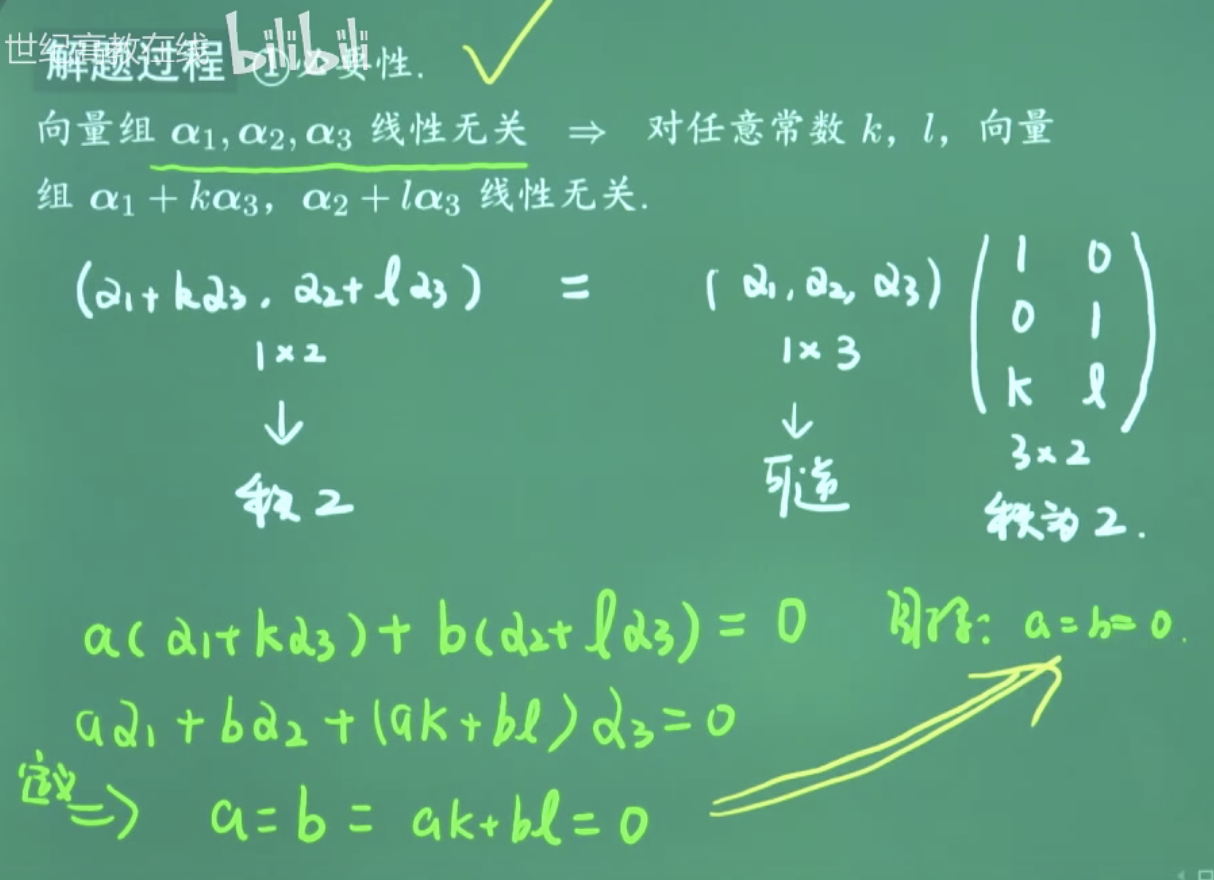 世纪高教在线 bilibili
解题过程 ①必要性.
向量组 α₁,α₂,α₃ 线性无关 ⇒ 对任意常数 k, l, 向量
组 α₁ + kα₃, α₂ + lα₃ 线性无关.
(α₁+kα₃, α₂+lα₃) = (α₁,α₂,α₃) (1 0
0 1
k l)
1×2 1×3 3×2
↓ ↓
秩2 可逆 秩为2.
a(α₁+kα₃)+b(α₂+lα₃)=0 目标: a=b=0.
aα₁+bα₂+(ak+bl)α₃=0
定义 ⇒ a=b=ak+bl=0